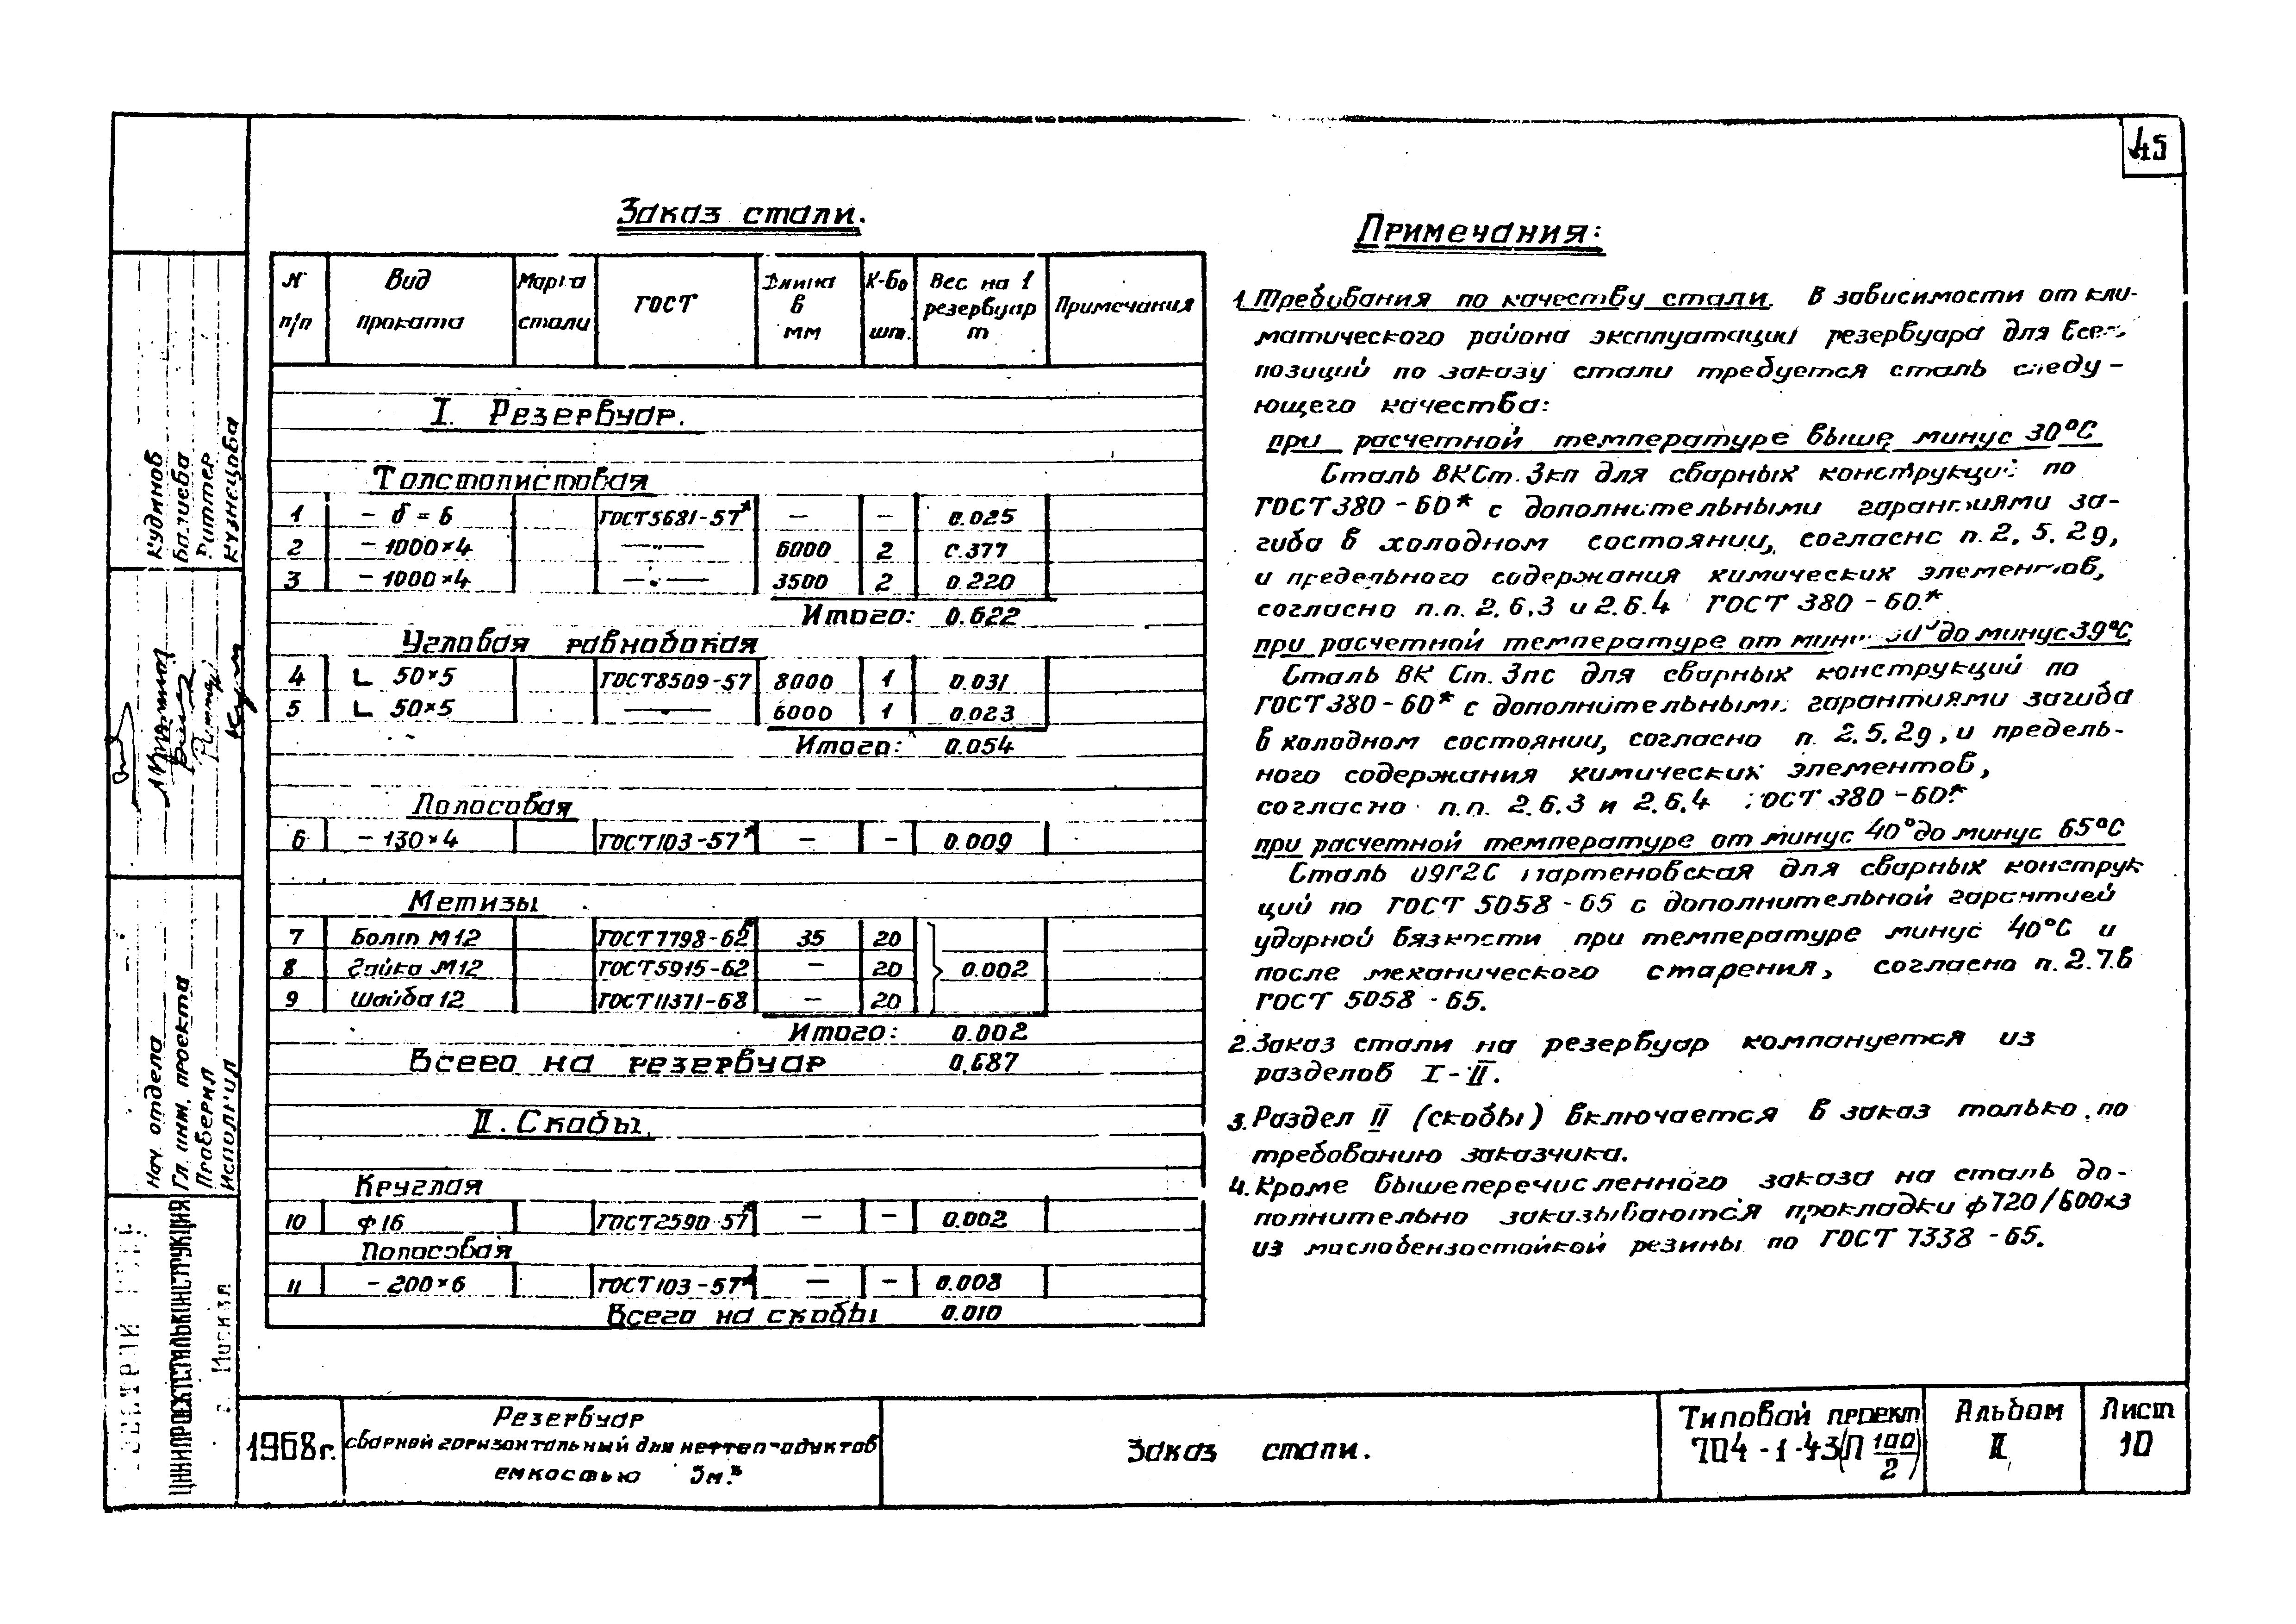 45
Заказ стали.
N п/п | Вид проката | Марка стали | ГОСТ | Длина в мм | К-во шт. | Вес на 1 резервуар т | Примечания
I. Резервуар.
Толстолистовая
1 | - δ = 6 | ГОСТ 5681-57* | — | — | 0.025
2 | - 1000×4 | —"— | 6000 | 2 | 0.377
3 | - 1000×4 | —"— | 3500 | 2 | 0.220
Итого: 0.622
Угловая равнобокая
4 | L 50×5 | ГОСТ 8509-57 | 8000 | 1 | 0.031
5 | L 50×5 | —"— | 6000 | 1 | 0.023
Итого: 0.054
Полосовая
6 | - 130×4 | ГОСТ 103-57* | — | — | 0.009
Метизы
7 | Болт М12 | ГОСТ 7798-62* | 35 | 20
8 | Гайка М12 | ГОСТ 5915-62 | — | 20 | 0.002
9 | Шайба 12 | ГОСТ 11371-68 | — | 20
Итого: 0.002
Всего на резервуар 0.687
II. Скобы.
Круглая
10 | ф 16 | ГОСТ 2590-57* | — | — | 0.002
Полосовая
11 | - 200×6 | ГОСТ 103-57* | — | — | 0.008
Всего на скобы 0.010
Примечания:
1. Требования по качеству стали. В зависимости от кли-
матического района эксплуатации резервуара для всех
позиций по заказу стали требуется сталь следу-
ющего качества:
при расчетной температуре выше минус 30°С
Сталь ВКСт.3кп для сварных конструкций по
ГОСТ 380-60* с дополнительными гарантиями за-
гиба в холодном состоянии, согласно п. 2.5.2д,
и предельного содержания химических элементов,
согласно п.п. 2.6.3 и 2.6.4 ГОСТ 380-60.*
при расчетной температуре от минус 30° до минус 39°С
Сталь ВК Ст.3пс для сварных конструкций по
ГОСТ 380-60* с дополнительными гарантиями загиба
в холодном состоянии, согласно п. 2.5.2д, и предель-
ного содержания химических элементов,
согласно п.п. 2.6.3 и 2.6.4 ГОСТ 380-60.*
при расчетной температуре от минус 40° до минус 65°С
Сталь 09Г2С мартеновская для сварных конструк
ций по ГОСТ 5058-65 с дополнительной гарантией
ударной вязкости при температуре минус 40°С и
после механического старения, согласно п. 2.7.в
ГОСТ 5058-65.
2. Заказ стали на резервуар компануется из
разделов I-II.
3. Раздел II (скобы) включается в заказ только по
требованию заказчика.
4. Кроме вышеперечисленного заказа на сталь до-
полнительно заказываются прокладки ф720/600х3
из маслобензостойкой резины по ГОСТ 7338-65.
Нач. отдела Кудинов
Гл. инж. проекта Валиева
Проверил Риттер
Исполнил Кузнецова
ЦНИИПРОЕКТСТАЛЬКОНСТРУКЦИЯ
г. Москва
1968г.
Резервуар
сварной горизонтальный для нефтепродуктов
емкостью м.³
Заказ стали.
Типовой проект
704-1-43(П 100/2)
Альбом
II
Лист
10